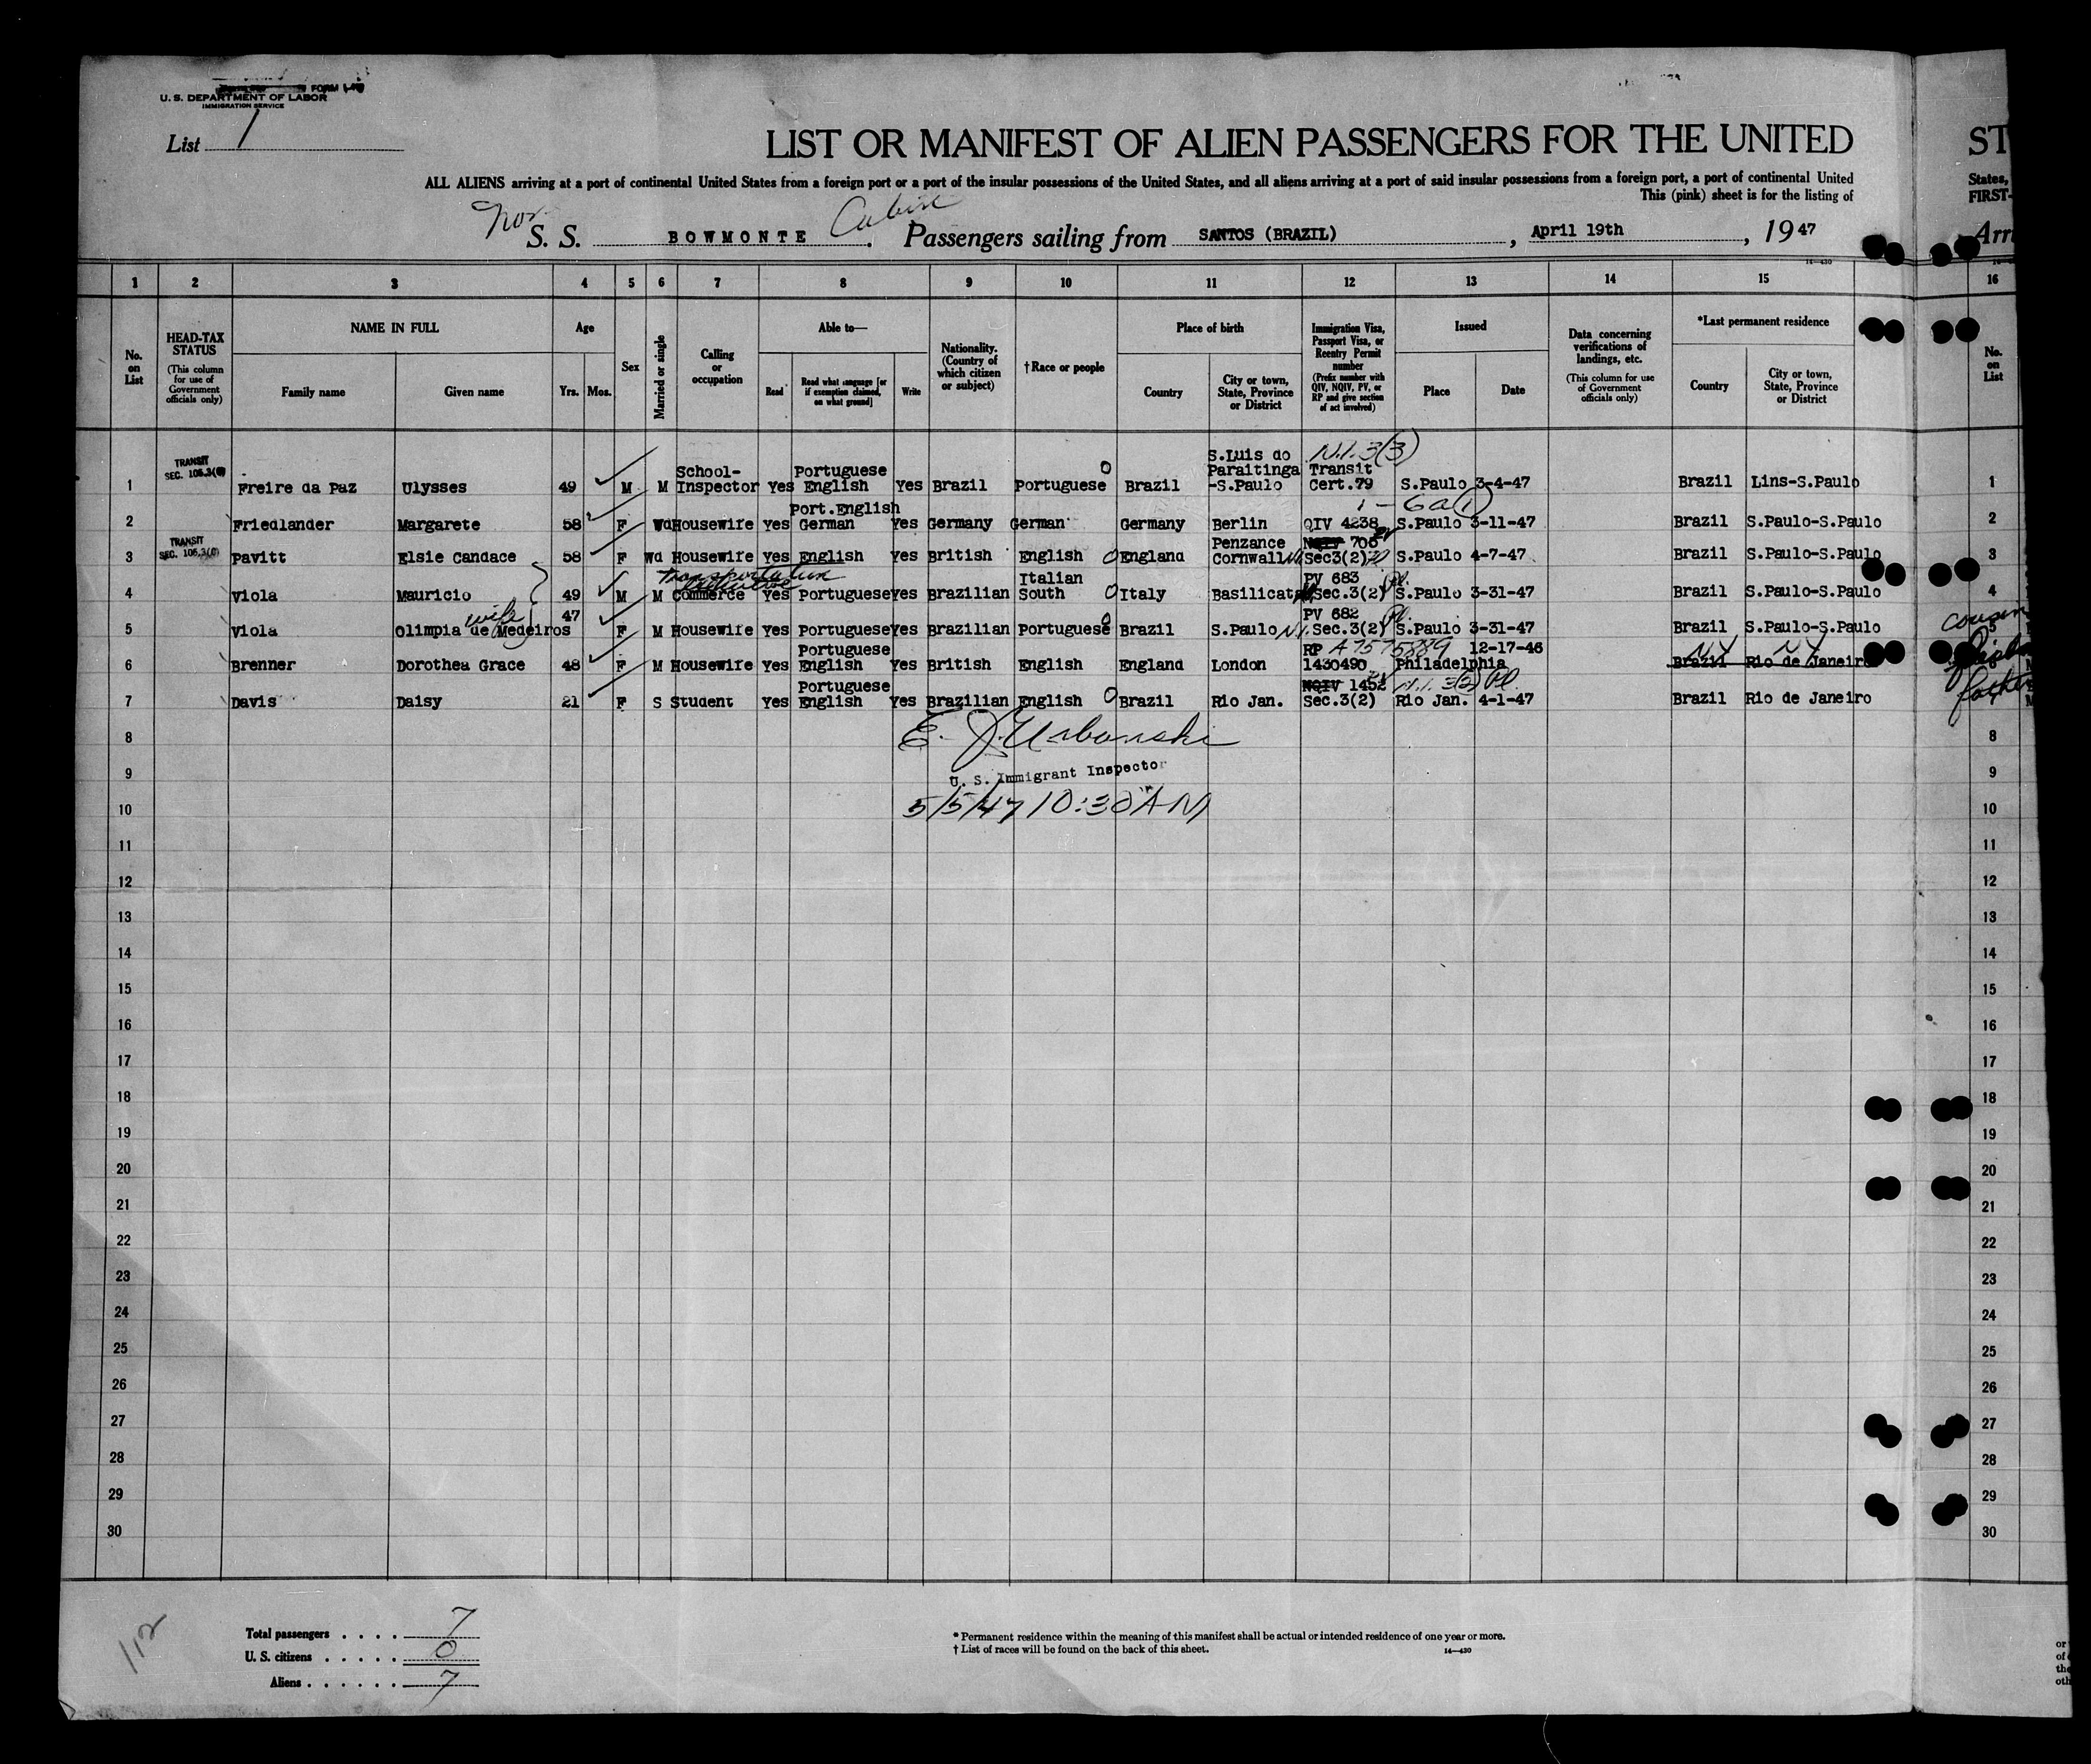 FORM
U. S. DEPARTMENT OF LABOR
IMMIGRATION SERVICE
List 1
LIST OR MANIFEST OF ALIEN PASSENGERS FOR THE UNITED ST
ALL ALIENS arriving at a port of continental United States from a foreign port or a port of the insular possessions of the United States, and all aliens arriving at a port of said insular possessions from a foreign port, a port of continental United States,
This (pink) sheet is for the listing of FIRST-
Nor. S. S. BOWMONTE Cabin. Passengers sailing from SANTOS (BRAZIL), April 19th, 19 47 Arri
16—430
1 2 3 4 5 6 7 8 9 10 11 12 13 14 15 16
No. on List
HEAD-TAX STATUS (This column for use of Government officials only)
NAME IN FULL Family name Given name
Age Yrs. Mos.
Sex
Married or single
Calling or occupation
Able to— Read Read what language [or if exemption claimed, on what ground] Write
Nationality. (Country of which citizen or subject)
†Race or people
Place of birth Country City or town, State, Province or District
Immigration Visa, Passport Visa, or Reentry Permit number (Prefix number with QIV, NQIV, PV, or RP and give section of act involved)
Issued Place Date
Data concerning verifications of landings, etc. (This column for use of Government officials only)
*Last permanent residence Country City or town, State, Province or District
No. on List
1 TRANSIT SEC. 105.3(C) Freire da Paz Ulysses 49 M M School-Inspector Yes Portuguese English Yes Brazil Portuguese O Brazil S.Luis do Paraitinga -S.Paulo N.I. 3(3) Transit Cert.79 S.Paulo 3-4-47 Brazil Lins-S.Paulo 1
2 Friedlander Margarete 58 F Wd Housewife Yes Port.English German Yes Germany German Germany Berlin 6a(1) QIV 4238 S.Paulo 3-11-47 Brazil S.Paulo-S.Paulo 2
3 TRANSIT SEC. 105.3(C) Pavitt Elsie Candace 58 F Wd Housewife Yes English Yes British English O England Penzance Cornwall NQIV 706 PV Sec3(2) S.Paulo 4-7-47 Brazil S.Paulo-S.Paulo 3
4 Viola Mauricio 49 M M Transportation Executive Commerce Yes Portuguese Yes Brazilian Italian South O Italy Basilicata PV 683 Sec.3(2) Pl. S.Paulo 3-31-47 Brazil S.Paulo-S.Paulo 4
5 Viola Olimpia de Medeiros wife 47 F M Housewife Yes Portuguese Yes Brazilian Portuguese O Brazil S.Paulo N.I. PV 682 Sec.3(2) Pl. S.Paulo 3-31-47 Brazil S.Paulo-S.Paulo cousin 5
6 Brenner Dorothea Grace 48 F M Housewife Yes Portuguese English Yes British English England London RP A7575889 1430490 Philadelphia 12-17-46 NY NY Brazil Rio de Janeiro
7 Davis Daisy 21 F S Student Yes Portuguese English Yes Brazilian English O Brazil Rio Jan. NQIV 1452 PV Sec.3(2) N.I. 3(2) Pl. Rio Jan. 4-1-47 Brazil Rio de Janeiro father
8 8
E. J. Urbanski
9 9
U. S. Immigrant Inspector
10 10
5/5/47 10:30 AM
11 11
12 12
13 13
14 14
15 15
16 16
17 17
18 18
19 19
20 20
21 21
22 22
23 23
24 24
25 25
26 26
27 27
28 28
29 29
30 30
112
Total passengers . . . . 7
U. S. citizens . . . . . 0
Aliens . . . . . . 7
* Permanent residence within the meaning of this manifest shall be actual or intended residence of one year or more.
† List of races will be found on the back of this sheet.
16—430
or
of
the
oth